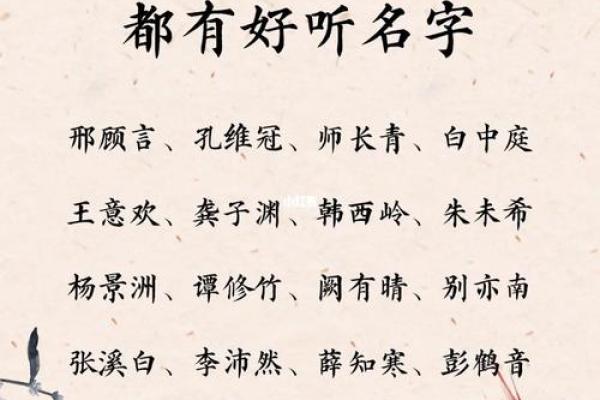 都有好听名字
邢顾言、孔维冠、师长青、白中庭
王意欢、龚子渊、韩西岭、朱未希
杨景洲、谭修竹、阙有晴、别亦南
张溪白、李沛然、薛知寒、彭鹤音